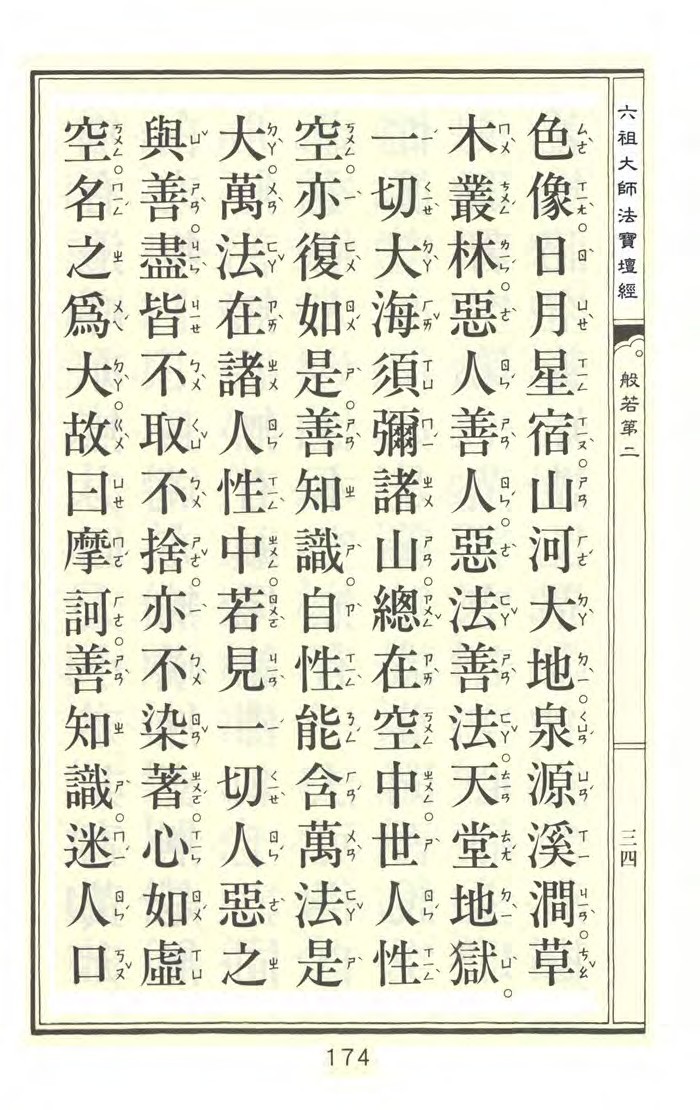 六祖大師法寶壇經
般若第二
三四
色像。日月星宿。山河大地。泉源溪澗。草
木叢林。惡人善人。惡法善法。天堂地獄。
一切大海。須彌諸山。總在空中。世人性
空。亦復如是。善知識。自性能含萬法是
大。萬法在諸人性中。若見一切人惡之
與善。盡皆不取不捨。亦不染著。心如虛
空。名之為大。故曰摩訶。善知識。迷人口
174